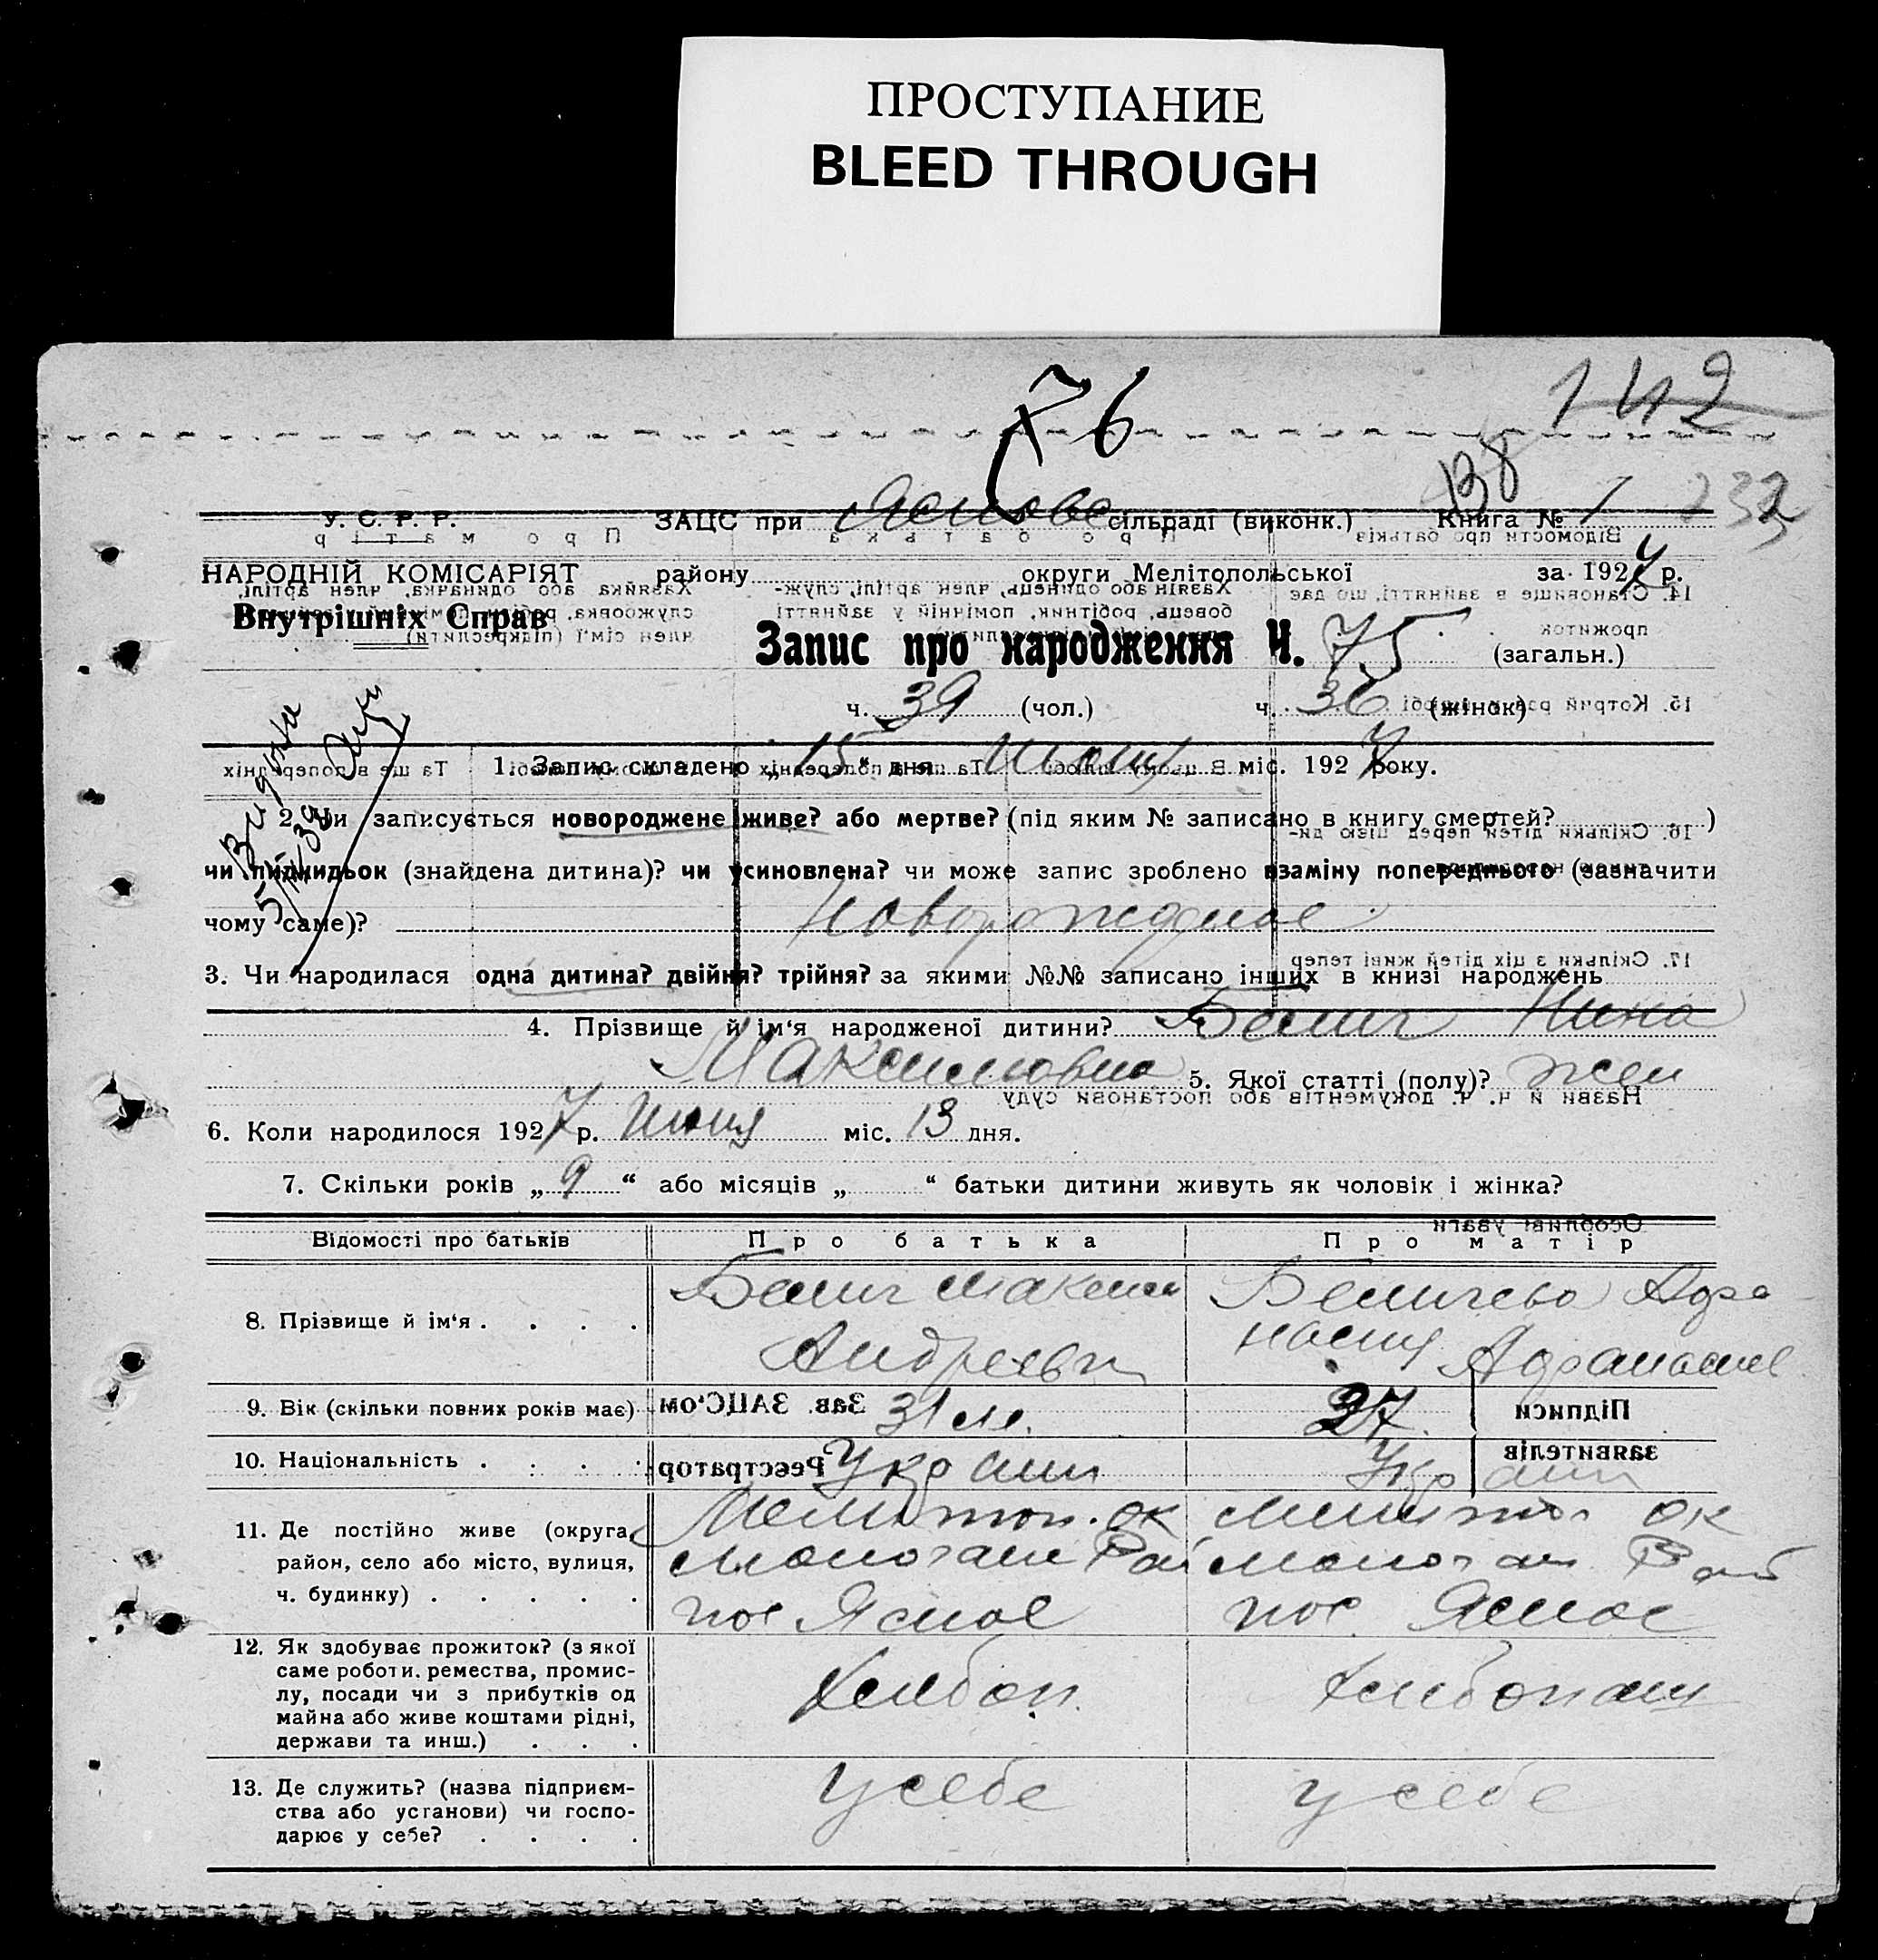 ПРОСТУПАНИЕ
BLEED THROUGH
76
142
138
232
У. С. Р. Р.
ЗАЦС при Яснове сільраді (виконк.) Книга № 1
НАРОДНІЙ КОМІСАРІЯТ району округи Мелітопольської за 1927 р.
Внутрішніх Справ
Запис про народження Ч. 75 (загальн.)
ч. 39 (чол.) ч. 36 (жінок)
1. Запис складено „15“ дня Июня міс. 1927 року.
2. Чи записується новороджене живе? або мертве? (під яким № записано в книгу смертей? )
чи підкидьок (знайдена дитина)? чи усиновлена? чи може запис зроблено взаміну попереднього (зазначити
чому саме)? Новорожденое
3. Чи народилася одна дитина? двійня? трійня? за якими №№ записано інших в книзі народжень
4. Прізвище й ім'я народженої дитини? Нина
Максимовна 5. Якої статті (полу)? жен
6. Коли народилося 1927 р. Июня міс. 13 дня.
7. Скільки років „ 9 “ або місяців „ “ батьки дитини живуть як чоловік і жінка?
Відомості про батьків Про батька Про матір
8. Прізвище й ім'я . . . . Максим
Андреевич
9. Вік (скільки повних років має) 31 27
10. Національність . . . . Украин Украин
11. Де постійно живе (округа, Мелитоп. ок Мелитоп ок
район, село або місто, вулиця, Рай Рай
ч. будинку) . . . . . пос Ясное пос. Ясное
12. Як здобуває прожиток? (з якої
саме роботи, ремества, промис-
лу, посади чи з прибутків од Хлебоп. Хлебопаш
майна або живе коштами рідні,
держави та инш.) . . .
13. Де служить? (назва підприєм- у себе у себе
ства або установи) чи госпо-
дарює у себе? . . . .